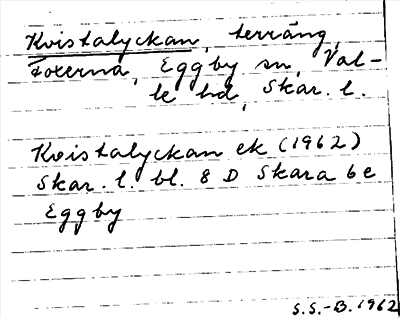 Kvistalyckan, terräng,
Foxerna, Eggby sn, Val-
le hd, Skar. l.
Kvistalyckan ek (1962)
Skar. l. bl. 8 D Skara 6e
Eggby
S.S.-B. 1962